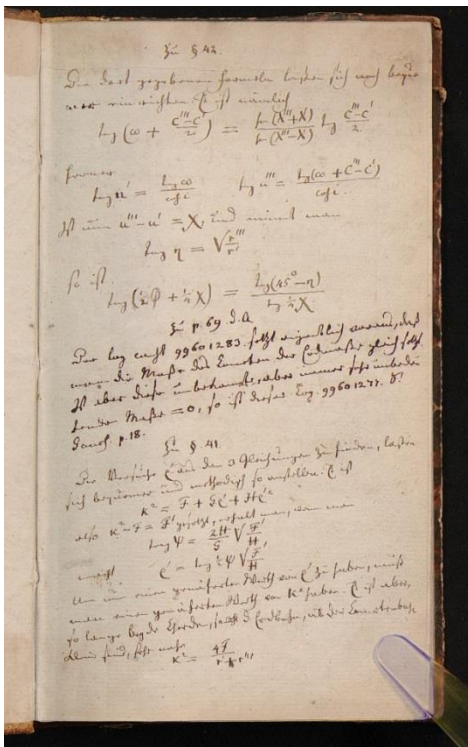 Zu § 42.
Die dort gegebenen Formeln lassen sich noch beque
mer einrichten. Es ist nämlich
tng (ω + C'''-C'/2) = sin(X'''+X')/sin(X'''-X') tg C'''-C'/2.
ferner
tng u' = tng ω/cos i tng u''' = tng(ω + C'''-C')/cos i.
Ist nun u'''-u' = χ, und nimmt man
tng η = √r'''/r'
so ist
tng (½φ + ¼χ) = tng(45°-η)/tg ¼χ
Zu p. 69. d. A
Der log const 99601283. setzt eigentlich voraus, daß
man die Masse des Cometen der Erdmasse gleich setzt.
Ist aber diese unbekannte, aber immer sehr unbedeu
tende Masse = 0, so ist dieser Log. 99601277. S.
Gauss. p. 18.
Zu § 41.
Die Versuche aus den 3 Gleichungen zu finden, lassen
sich bequemer und methodisch so anstellen. Es ist
also K²-F = gesetzt, erhält man, wenn man
macht
Um nun einen genäherten Werth von zu haben, muß
man einen genäherten Werth von K² haben. Es ist aber,
so lange beyde Chorden, der Erdbahn, und der Cometenbahn
klein sind, sehr nahe
K² = 4F/r'+r'''